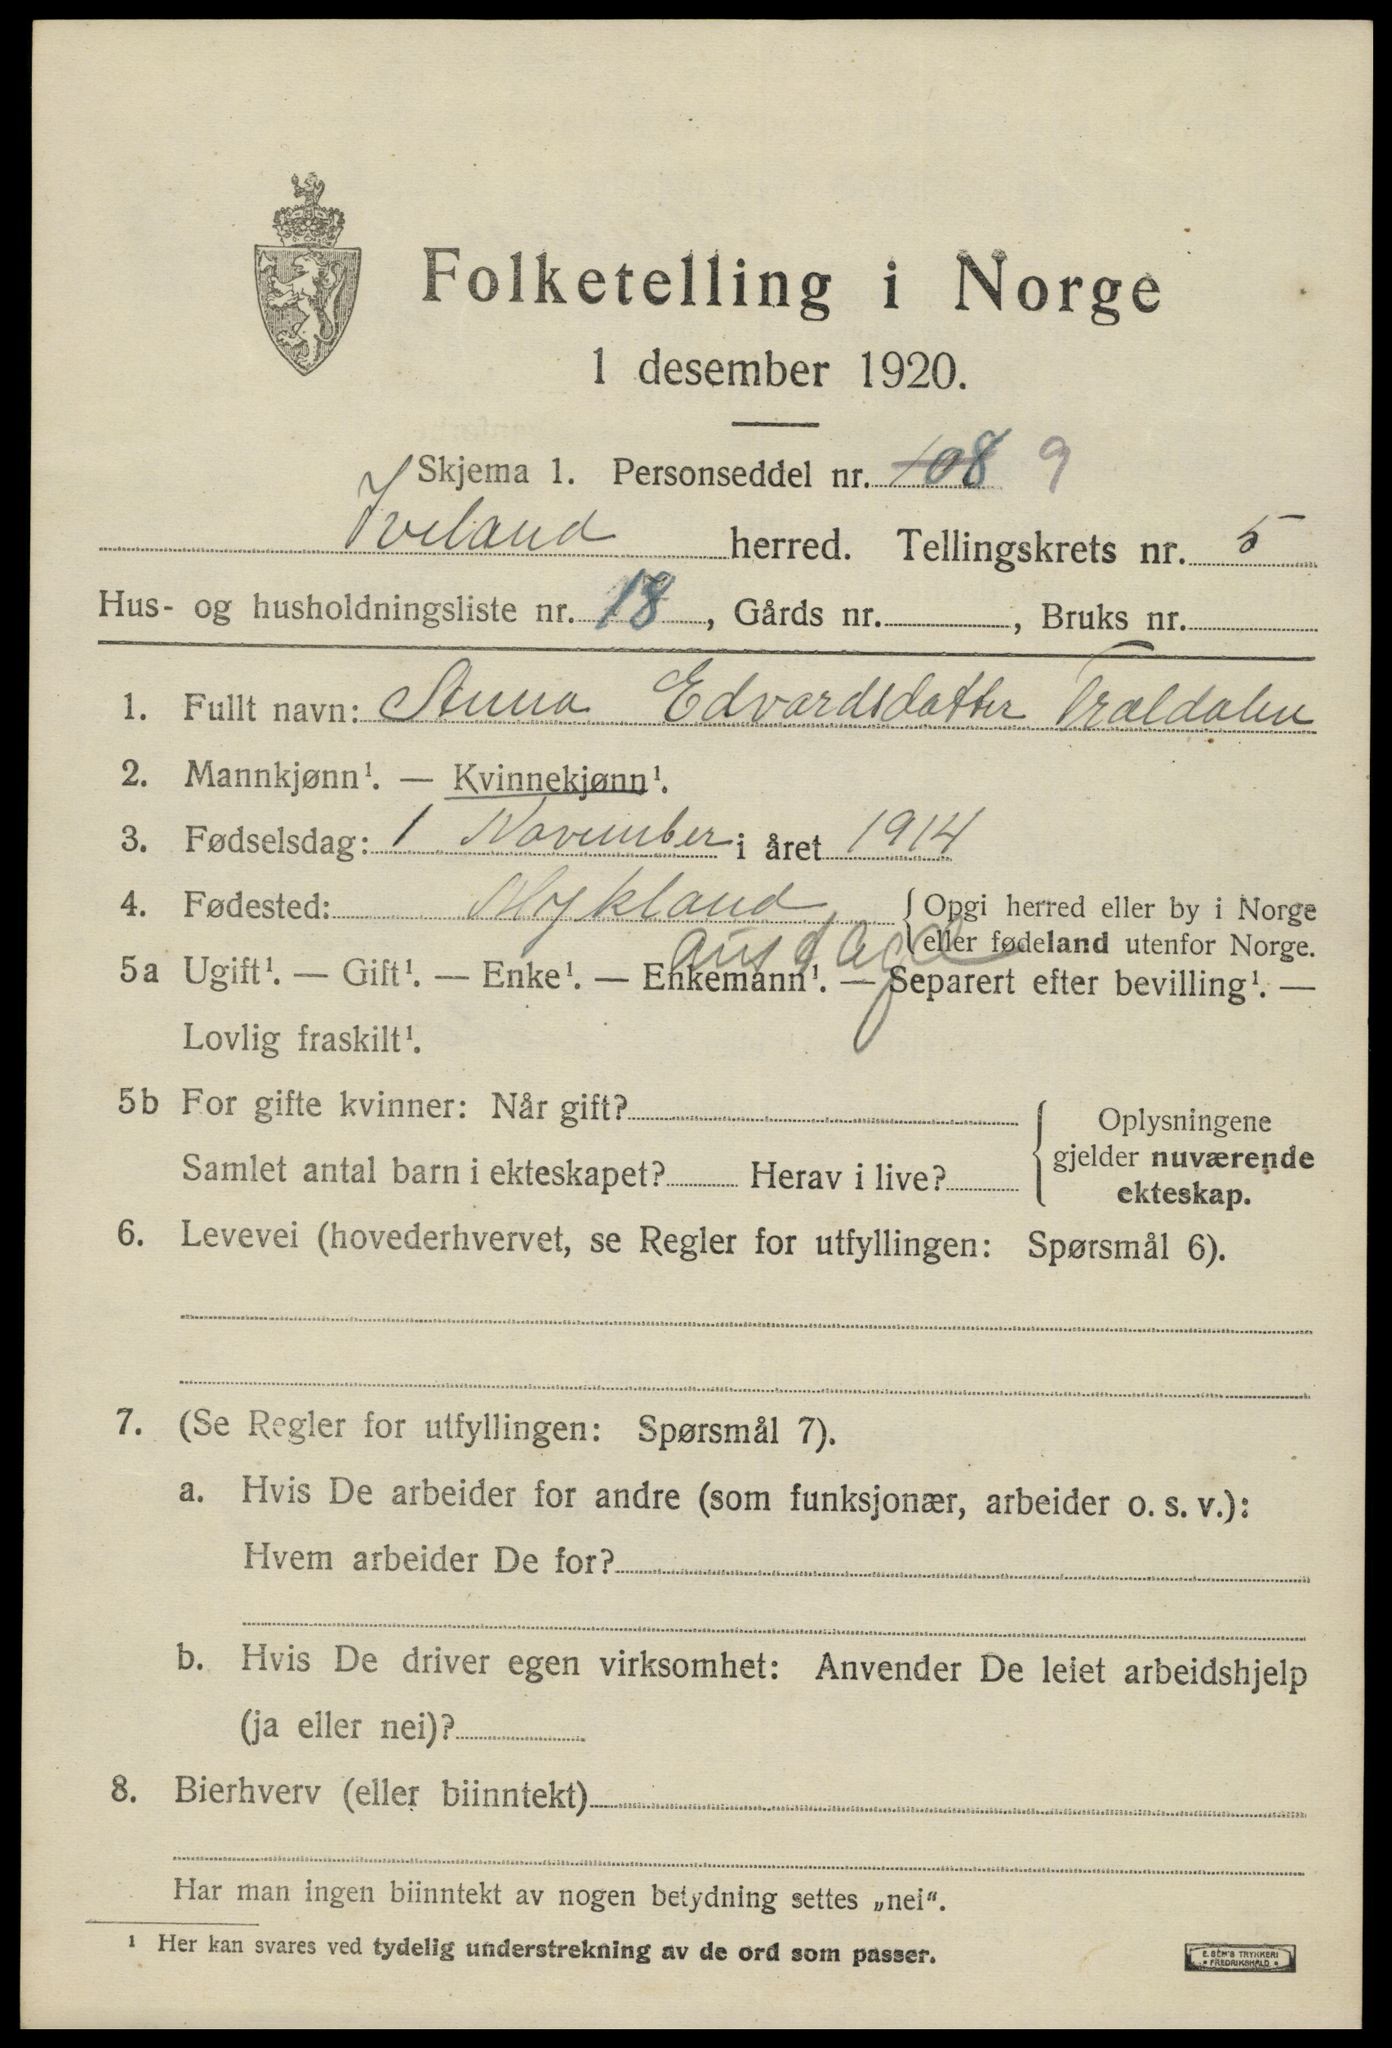 Folketelling i Norge
1 desember 1920.
Skjema 1. Personseddel nr. 108 9
Iveland herred. Tellingskrets nr. 5
Hus- og husholdningsliste nr. 18, Gårds nr. , Bruks nr.
1. Fullt navn: Anna Edvardsdatter Trældalen
2. Mannkjønn¹. — Kvinnekjønn¹.
3. Fødselsdag: 1 November i året 1914
4. Fødested: Mykland, { Opgi herred eller by i Norge
eller fødeland utenfor Norge.
5a Ugift¹. — Gift¹. — Enke¹. — Enkemann¹. — Separert efter bevilling¹. —
Lovlig fraskilt¹.
5b For gifte kvinner: Når gift? { Oplysningene
gjelder nuværende
ekteskap.
Samlet antal barn i ekteskapet? Herav i live?
6. Levevei (hovederhvervet, se Regler for utfyllingen: Spørsmål 6).
7. (Se Regler for utfyllingen: Spørsmål 7).
a. Hvis De arbeider for andre (som funksjonær, arbeider o. s. v.):
Hvem arbeider De for?
b. Hvis De driver egen virksomhet: Anvender De leiet arbeidshjelp
(ja eller nei)?
8. Bierhverv (eller biinntekt)
Har man ingen biinntekt av nogen betydning settes „nei“.
¹ Her kan svares ved tydelig understrekning av de ord som passer.
E. SEM'S TRYKKERI
FREDRIKSHALD